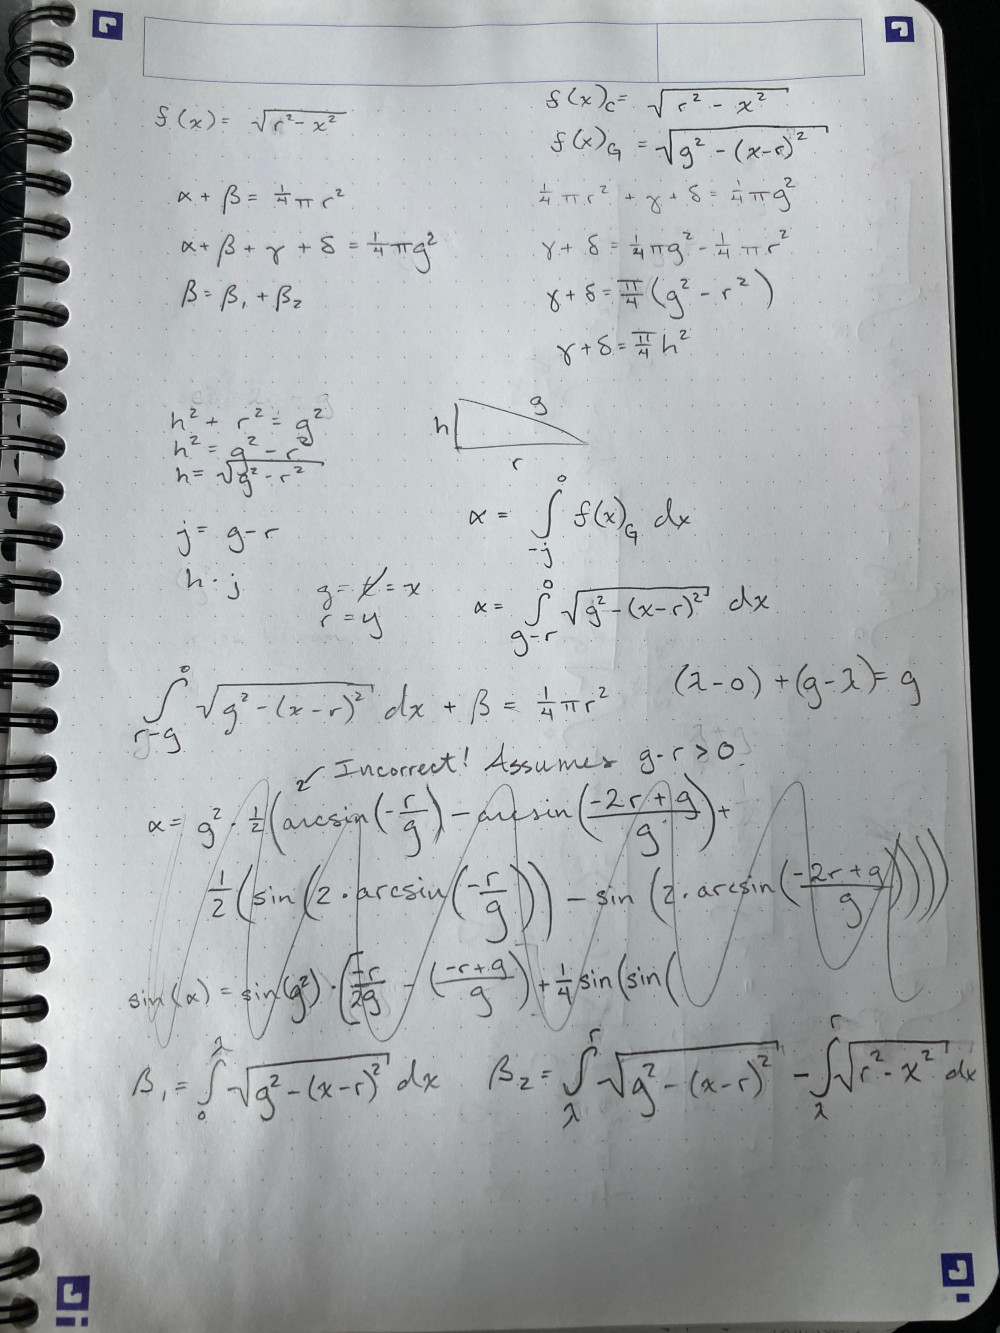 f(x) = √(r² - x²)
f(x)_C = √(r² - x²)
f(x)_G = √(g² - (x-r)²)
α + β = 1/4 π r²
α + β + γ + δ = 1/4 π g²
β = β₁ + β₂
1/4 π r² + γ + δ = 1/4 π g²
γ + δ = 1/4 π g² - 1/4 π r²
γ + δ = π/4 (g² - r²)
γ + δ = π/4 h²
h² + r² = g²
h² = g² - r²
h = √(g² - r²)
h g
r
j = g - r
h · j
g = = x
r = y
α = ∫_{-j}^{0} f(x)_G dx
α = ∫_{g-r}^{0} √(g² - (x-r)²) dx
∫_{r-g}^{0} √(g² - (x-r)²) dx + β = 1/4 π r²
(λ-0) + (g-λ) = g
↙ Incorrect! Assumes g-r > 0
α = g² · 1/2 (arcsin(-r/g) - arcsin((-2r+g)/g) +
1/2 (sin(2·arcsin(-r/g)) - sin(2·arcsin((-2r+g)/g))))
sin(α) = sin(g²) · (-r/2g - ((-r+g)/g) + 1/4 sin(sin(
β₁ = ∫_{0}^{λ} √(g² - (x-r)²) dx
β₂ = ∫_{λ}^{r} √(g² - (x-r)²) - ∫_{λ}^{r} √(r² - x²) dx